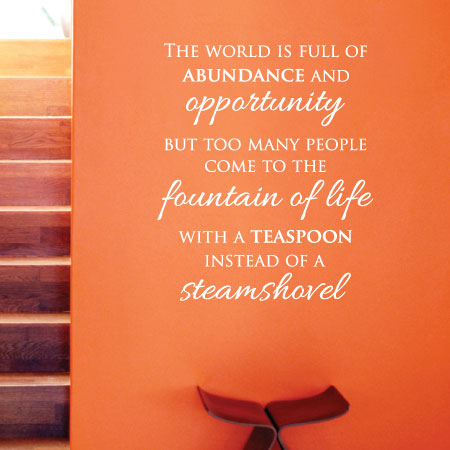 THE WORLD IS FULL OF
ABUNDANCE AND
opportunity
BUT TOO MANY PEOPLE
COME TO THE
fountain of life
WITH A TEASPOON
INSTEAD OF A
steamshovel